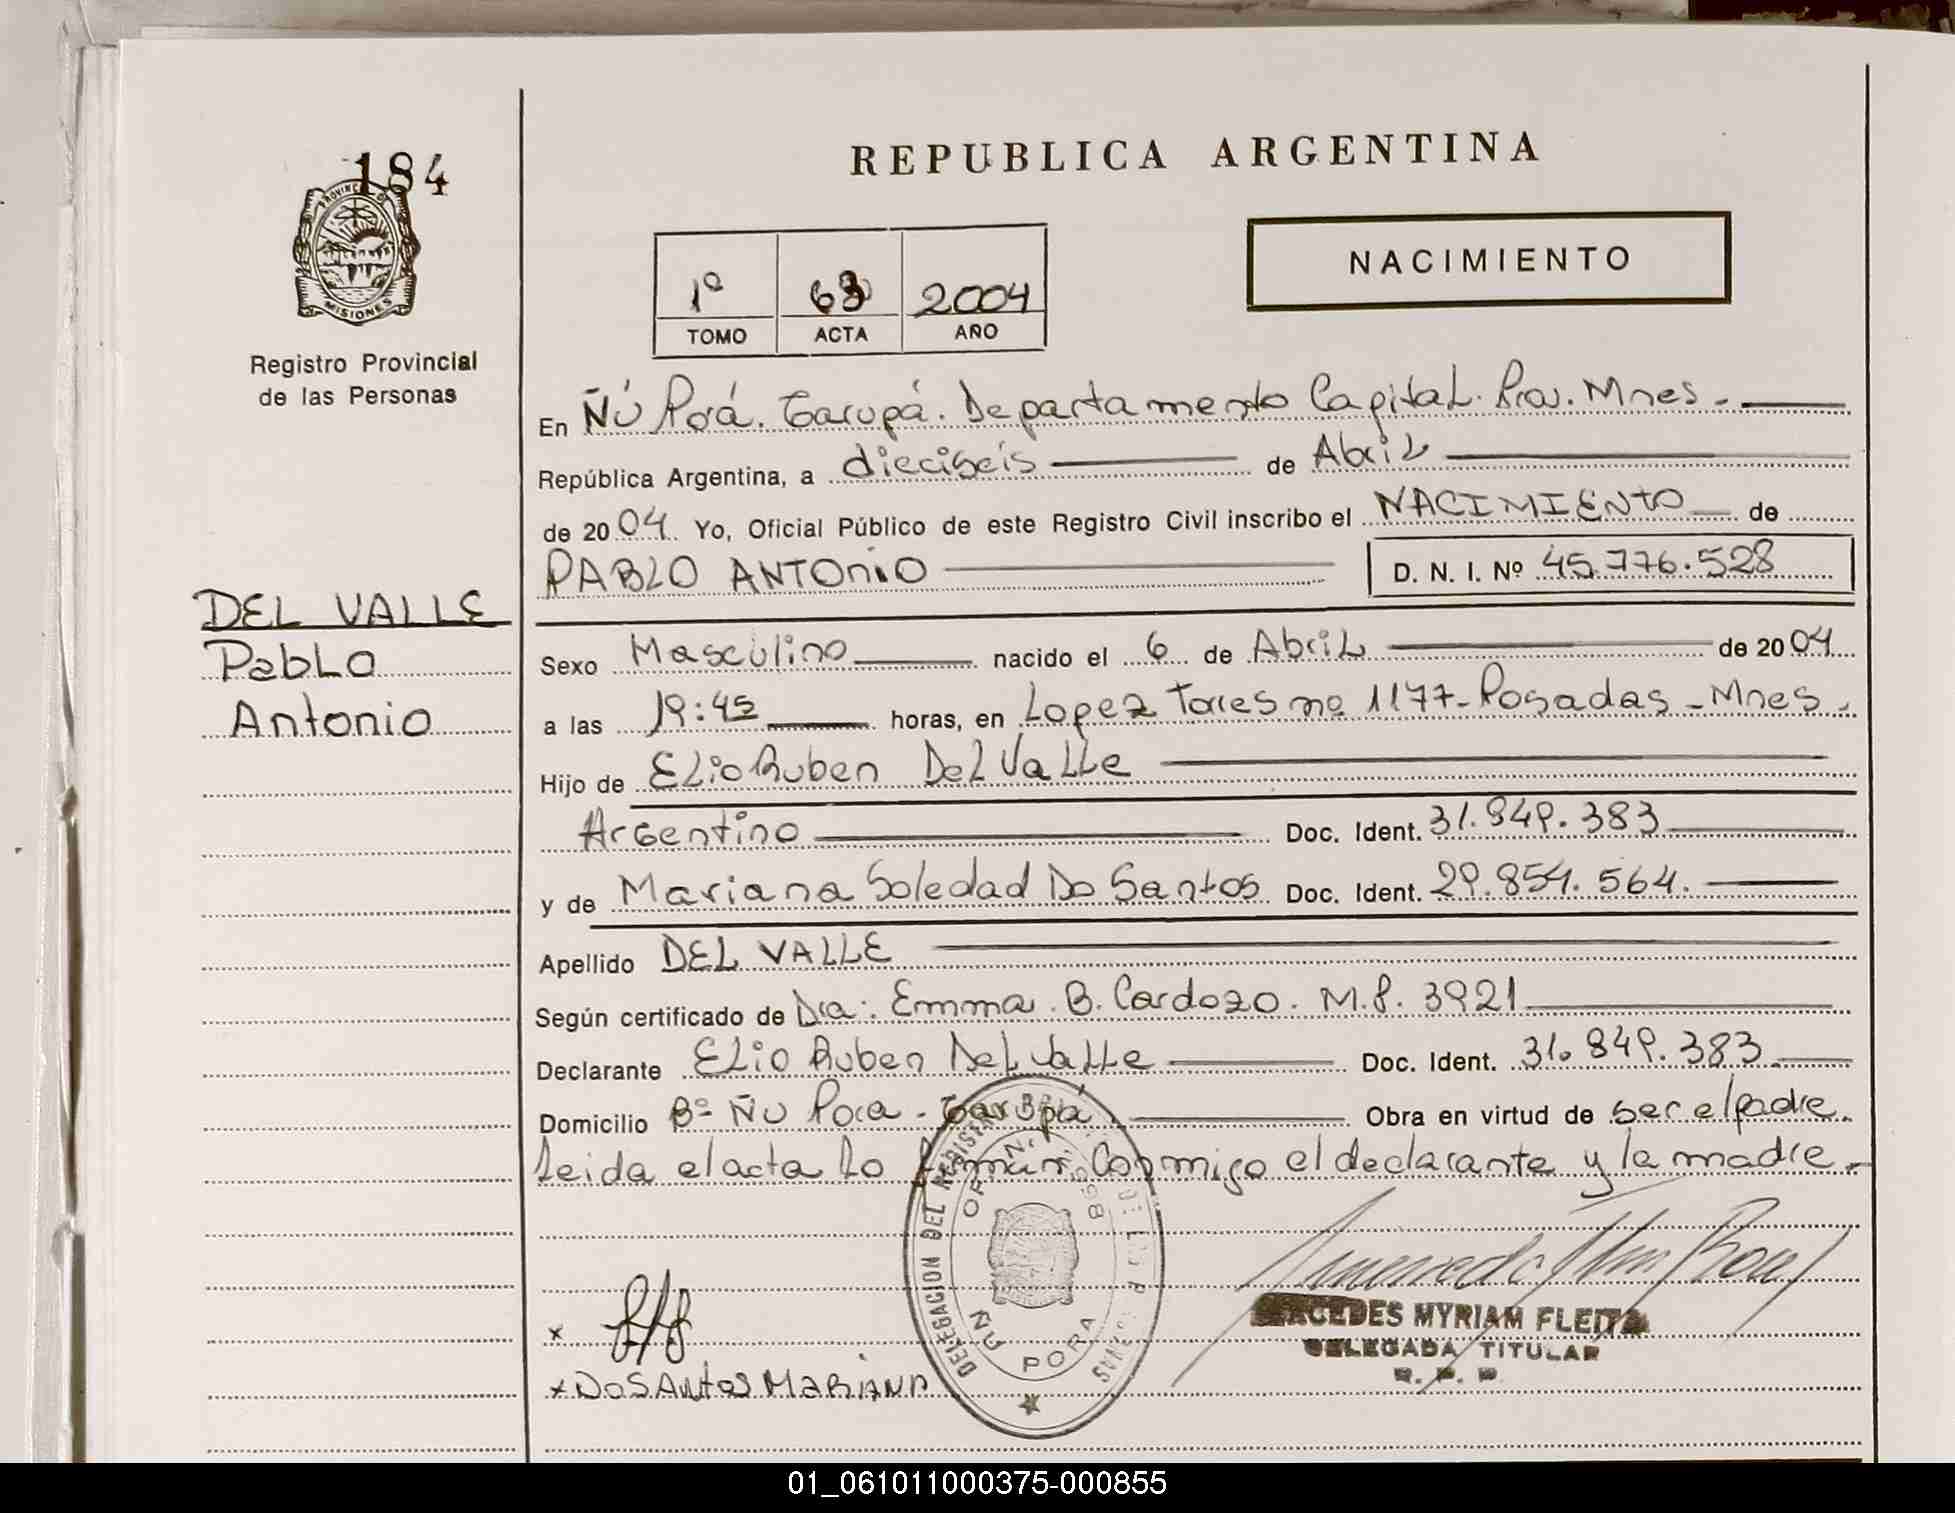 184
PROVINCIA DE
MISIONES
Registro Provincial
de las Personas
REPUBLICA ARGENTINA
NACIMIENTO
1º 2004
TOMO ACTA AÑO
En Ñú Porá. Garupá. Departamento Capital. Prov. Mnes.
República Argentina, a dieciseis de Abril
de 2004 Yo, Oficial Público de este Registro Civil inscribo el NACIMIENTO de
PABLO ANTONIO D. N. I. Nº 45.776.528
DEL VALLE
Pablo
Antonio
Sexo Masculino nacido el 6 de Abril de 2004
a las 19:45 horas, en Lopez Torres nº 1177-Posadas-Mnes.
Hijo de Elio Ruben Del Valle
Argentino Doc. Ident. 31.849.383
y de Mariana Soledad Do Santos Doc. Ident. 29.854.564.
Apellido DEL VALLE
Según certificado de Dra: Emma. B. Cardozo. M.P. 3921
Declarante Elio Ruben Del Valle Doc. Ident. 31.849.383
Domicilio Bº Ñu Pora - Garupá Obra en virtud de ser el padre.
Leida el acta la firman conmigo el declarante y la madre.
DELEGACION DEL REGISTRO DE LAS PERSONAS
ÑU PORA
x
x DoSAntos MARIANA
MYRIAM FLEITA
DELEGADA TITULAR
R. P. P.
01_061011000375-000855